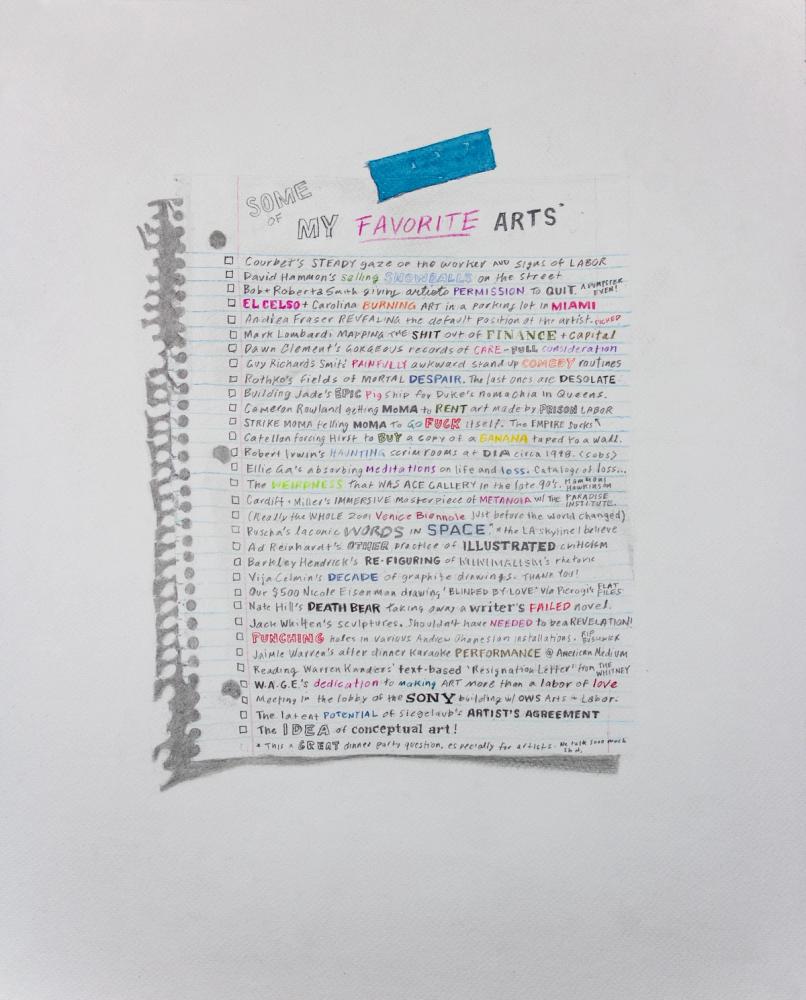 SOME
OF
MY FAVORITE ARTS*
Courbet's STEADY gaze on the worker AND signs of LABOR
David Hammon's selling SNOWBALLS on the street
Bob + Roberta Smith giving artists PERMISSION to QUIT. A DUMPSTER EVEN!
EL CELSO + Carolina BURNING ART in a parking lot in MIAMI
Andrea Fraser REVEALING the default position of the artist. FUCKED
Mark Lombardi MAPPING THE SHIT out of FINANCE + Capital
Dawn Clement's GORGEOUS records of CARE-FULL consideration
Guy Richards Smit's PAINFULLY awkward stand up COMEDY routines
Rothko's fields of MORTAL DESPAIR. The last ones are DESOLATE
Building Jade's EPIC Pig ship for Duke's nomachia in Queens.
Cameron Rowland getting MoMA to RENT art made by PRISON LABOR
STRIKE MOMA telling MOMA TO GO FUCK itself. The EMPIRE SUCKS
Catellan forcing Hirst to BUY a copy of a BANANA taped to a wall.
Robert Irwin's HAUNTING scrim rooms at DIA circa 1998. (sobs)
Ellie Ga's absorbing meditations on life and loss. Catalogs of loss...
The WEIRDNESS that WAS ACE GALLERY in the late 90's. HAMMONS HAWKINSON
Cardiff + Miller's IMMERSIVE masterpiece of METANOIA w/ THE PARADISE INSTITUTE.
(Really the WHOLE 2001 Venice Biennale just before the world changed)
Ruscha's laconic WORDS IN SPACE. * the LA skyline I believe
Ad Reinhardt's OTHER practice of ILLUSTRATED criticism
Barkley Hendrick's RE-FIGURING of MINIMALISM's rhetoric
Vija Celmin's DECADE of graphite drawings. THANK YOU!
Our $500 Nicole Eisenman drawing 'BLINDED BY LOVE' via Pierogi's FLAT FILES
Nate Hill's DEATH BEAR taking away a writer's FAILED novel.
Jack Whitten's sculptures. Shouldn't have NEEDED to be a REVELATION!
PUNCHING holes in various Andrew Ohanesian installations. RIP BUSHWICK
Jaimie Warren's after dinner Karaoke PERFORMANCE @ American Medium
Reading Warren Kanders' text-based 'Resignation Letter' from THE WHITNEY
W.A.G.E.'s dedication to making ART more than a labor of love
Meeting in the lobby of the SONY building w/ OWS Arts + Labor.
The latent POTENTIAL of Siegelaub's ARTIST'S AGREEMENT
The IDEA of conceptual art!
* This a GREAT dinner party question, especially for artists. We talk sooo much